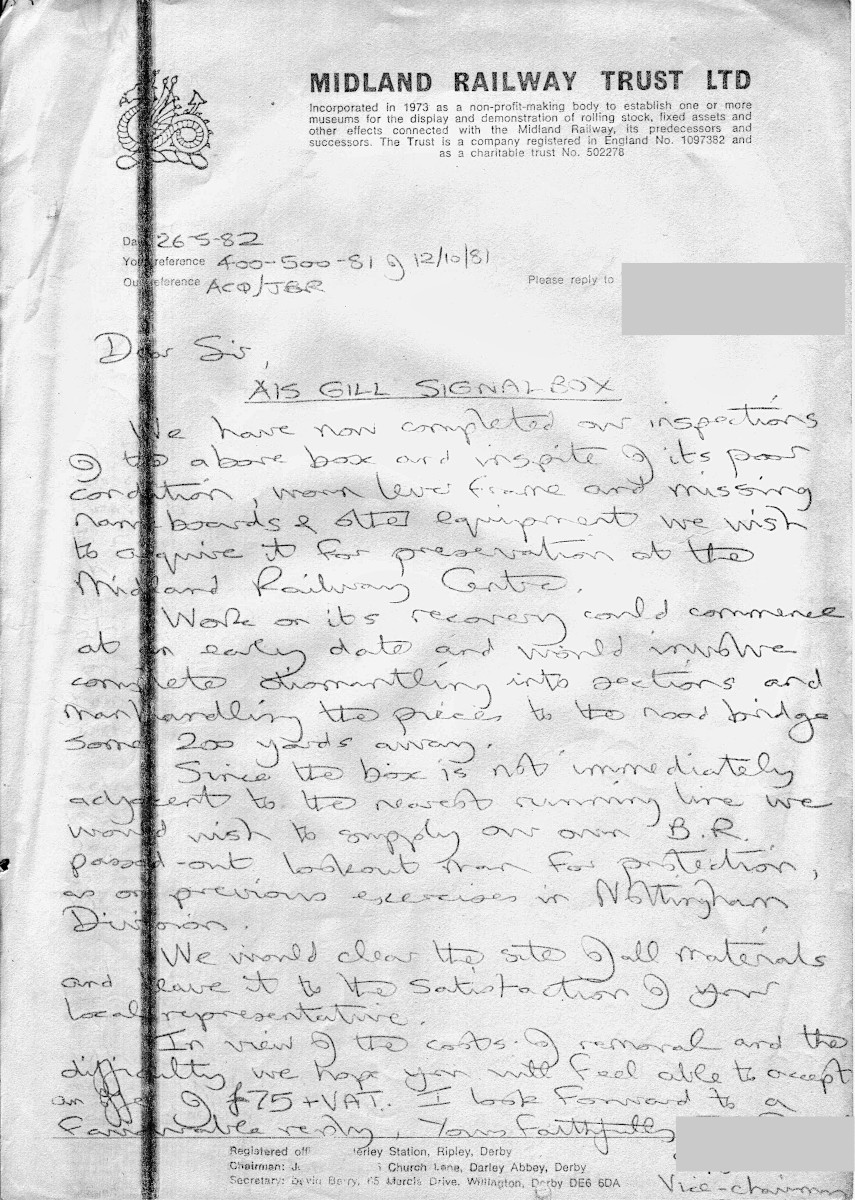 MIDLAND RAILWAY TRUST LTD
Incorporated in 1973 as a non-profit-making body to establish one or more
museums for the display and demonstration of rolling stock, fixed assets and
other effects connected with the Midland Railway, its predecessors and
successors. The Trust is a company registered in England No. 1097382 and
as a charitable trust No. 502278
Date 26-5-82
Your reference 400-500-81 of 12/10/81
Our reference ACQ/JBR
Please reply to
Dear Sir,
AIS GILL SIGNALBOX
We have now completed our inspections
of the above box and inspite of its poor
condition, worn lever frame and missing
name boards & other equipment we wish
to acquire it for preservation at the
Midland Railway Centre.
Work on its recovery could commence
at an early date and would involve
complete dismantling into sections and
manhandling the pieces to the road bridge
some 200 yards away.
Since the box is not immediately
adjacent to the nearest running line we
would wish to supply our own B.R.
passed-out lookout man for protection,
as on previous exercises in Nottingham
Division.
We would clear the site of all materials
and leave it to the satisfaction of your
local representative.
In view of the costs of removal and the
difficulty we hope you will feel able to accept
an offer of £75 + VAT. I look forward to a
favourable reply, Yours Faithfully
Registered off erley Station, Ripley, Derby
Chairman: J. Church Lane, Darley Abbey, Derby
Secretary: Drive, Willington, Derby DE6 6DA
Vice-chairman